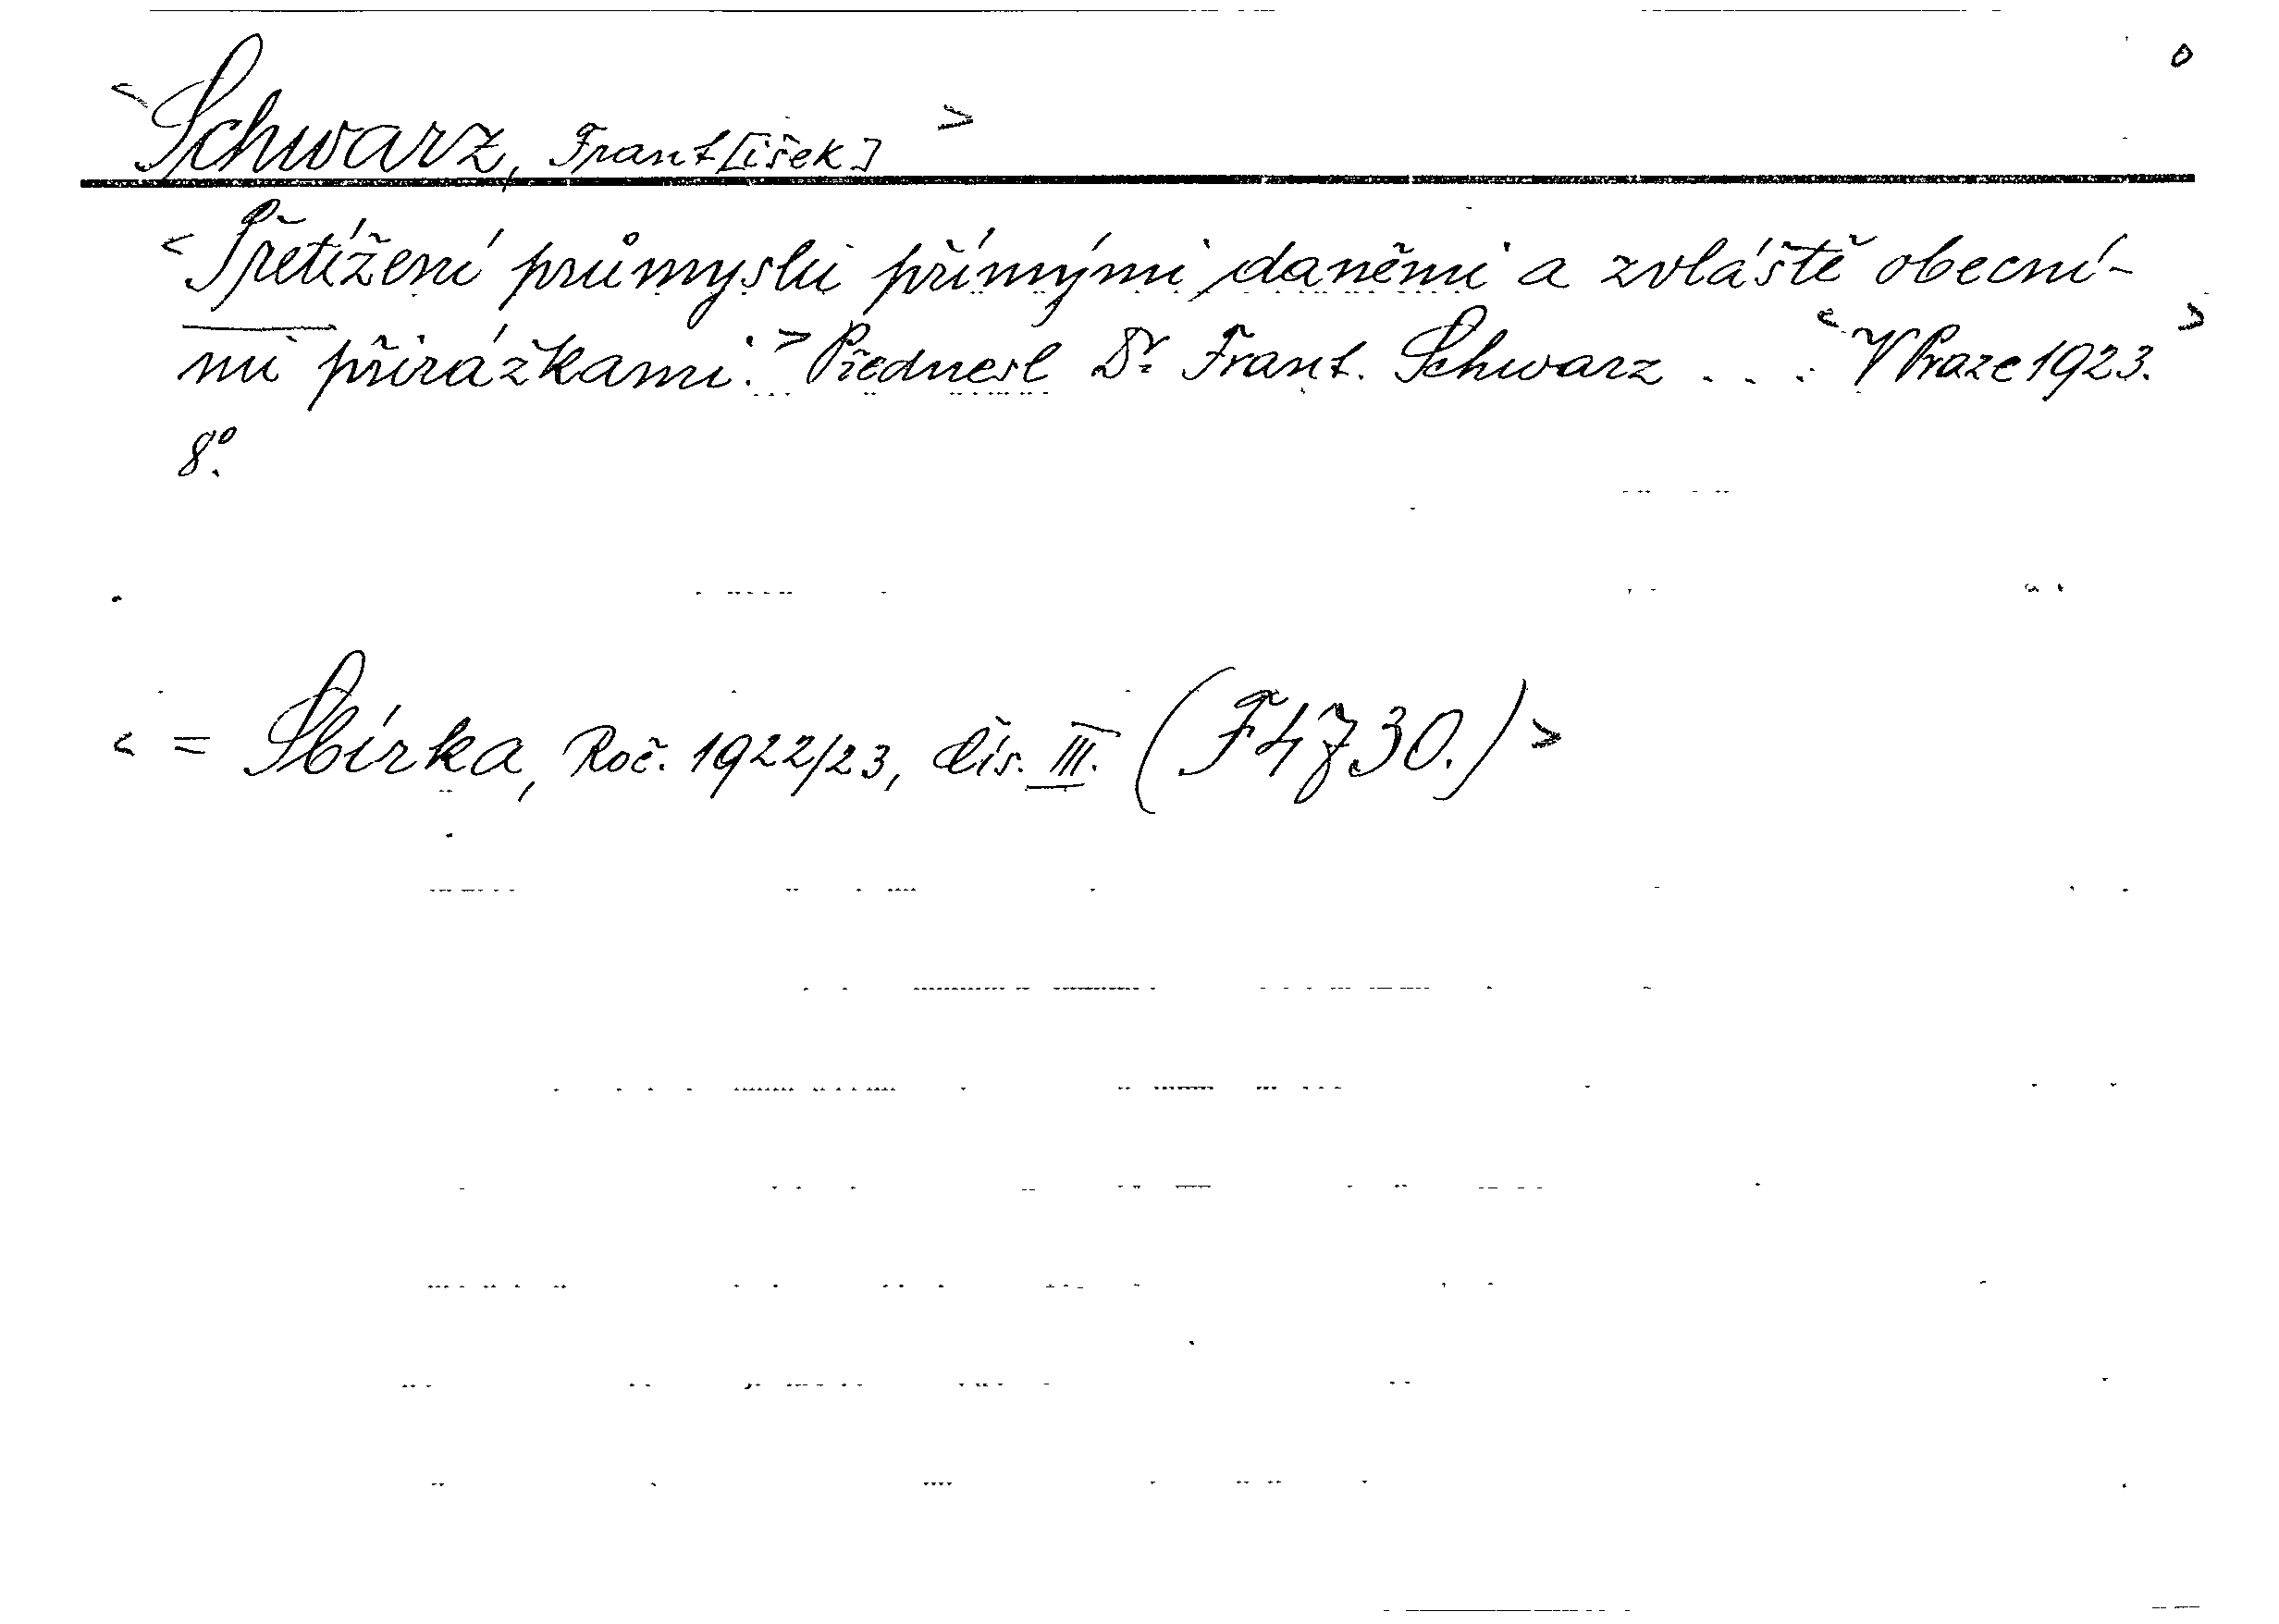 <Schwarz, Frant[išek]>
<Přetížení průmyslu přímými daněmi a zvláště obecní-
mi přirážkami.> Přednesl Dr. Frant. Schwarz . . . <V Praze 1923.>
8º.
<= Sbírka, Roč. 1922/23, čís. III. (F 4730.)>